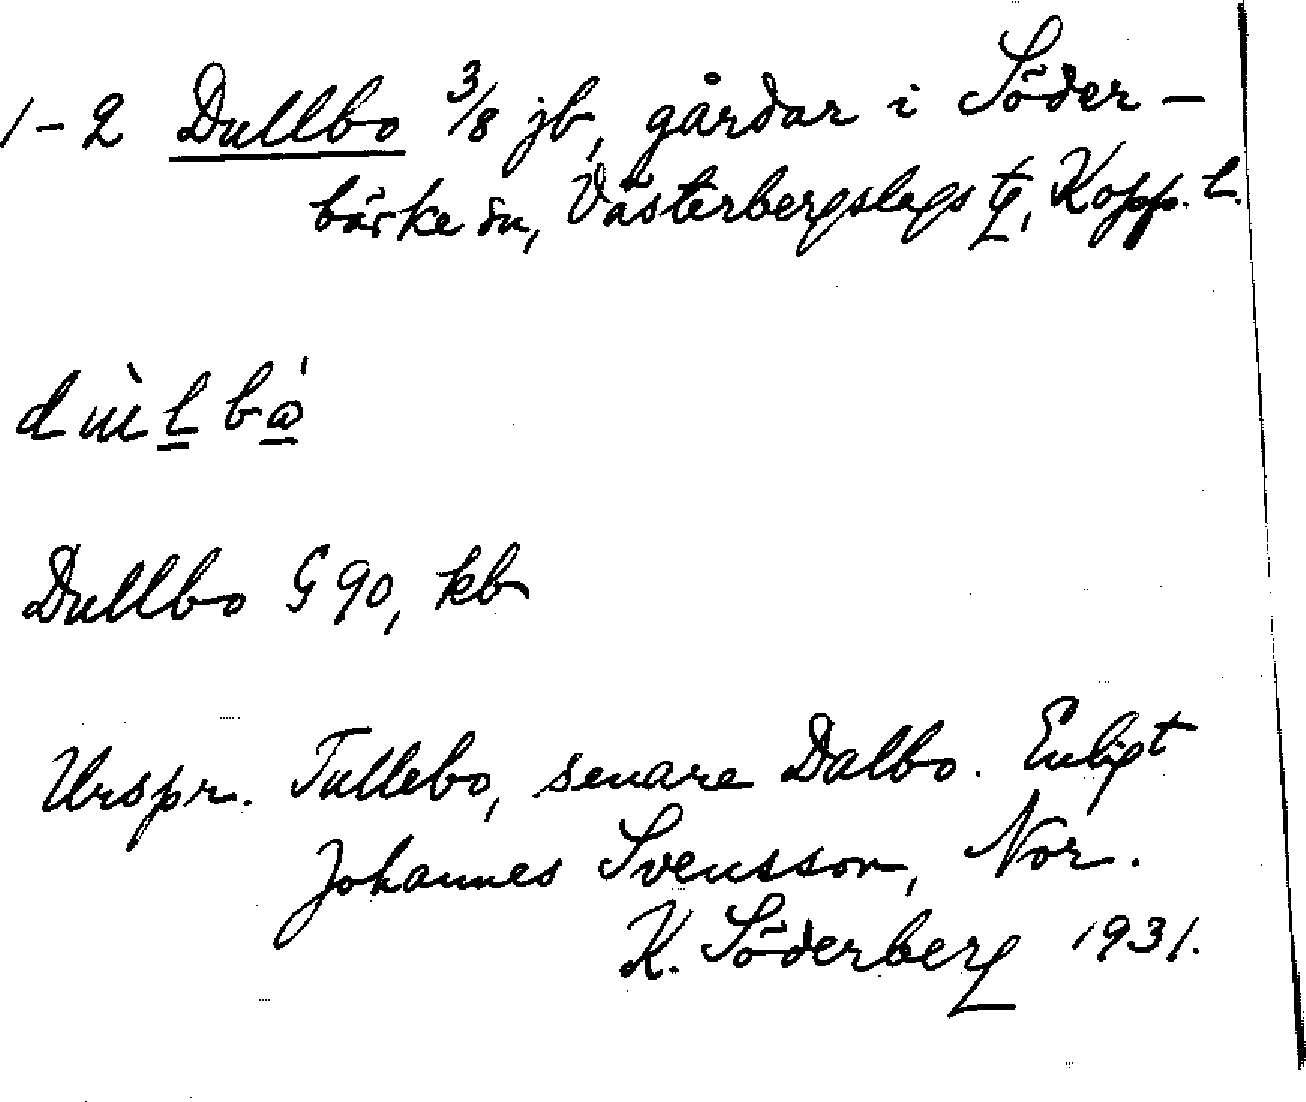 1-2 Dullbo 3/8 jb, gårdar i Söder-
bärke sn, Västerbergslags tg, Kopp. l.
Dullbo G 90, kb
Urspr. Tullebo, senare Dalbo. Enligt
Johannes Svensson, Nor.
K. Söderberg 1931.